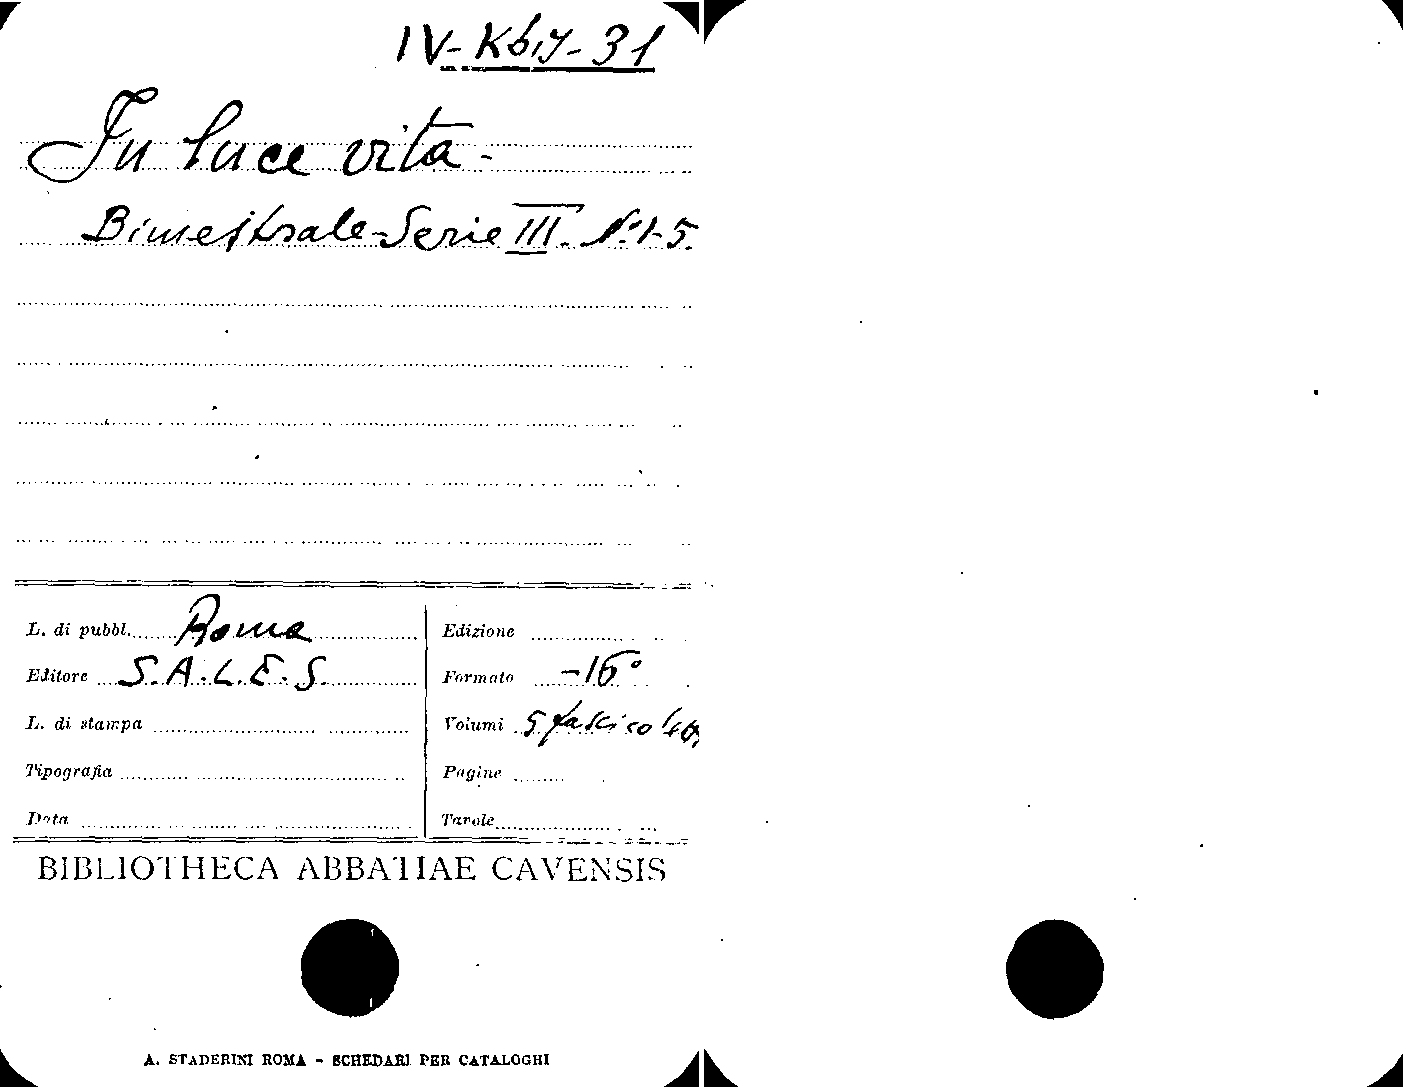 IV-K6,7-31
In luce vita-
Bimestrale-Serie III. N.° 1-5.
L. di pubbl. Roma
Editore S.A.L.E.S.
L. di stampa
Tipografia
Data
Edizione
Formato -16°
Volumi 5 fascicoli
Pagine
Tavole
BIBLIOTHECA ABBATIAE CAVENSIS
A. STADERINI ROMA - SCHEDARI PER CATALOGHI